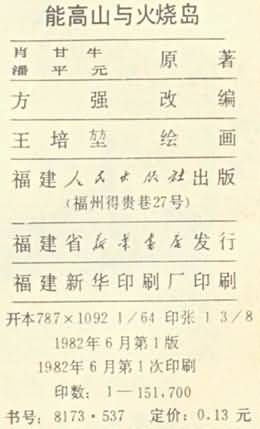 能高山与火烧岛
肖甘牛 原著
潘平元
方强 改编
王培堃 绘画
福建人民出版社出版
(福州得贵巷27号)
福建省新华书店发行
福建新华印刷厂印刷
开本787×1092 1/64 印张 1 3/8
1982年6月第1版
1982年6月第1次印刷
印数: 1—151,700
书号: 8173·537 定价: 0.13 元